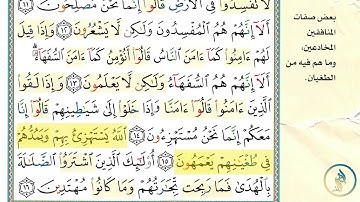 لَا تُفْسِدُوا۟ فِى ٱلْأَرْضِ قَالُوٓا۟ إِنَّمَا نَحْنُ مُصْلِحُونَ ١١
أَلَآ إِنَّهُمْ هُمُ ٱلْمُفْسِدُونَ وَلَٰكِن لَّا يَشْعُرُونَ ١٢ وَإِذَا قِيلَ
لَهُمْ ءَامِنُوا۟ كَمَآ ءَامَنَ ٱلنَّاسُ قَالُوٓا۟ أَنُؤْمِنُ كَمَآ ءَامَنَ ٱلسُّفَهَآءُ ۗ
أَلَآ إِنَّهُمْ هُمُ ٱلسُّفَهَآءُ وَلَٰكِن لَّا يَعْلَمُونَ ١٣ وَإِذَا لَقُوا۟
ٱلَّذِينَ ءَامَنُوا۟ قَالُوٓا۟ ءَامَنَّا وَإِذَا خَلَوْا۟ إِلَىٰ شَيَٰطِينِهِمْ قَالُوٓا۟ إِنَّا
مَعَكُمْ إِنَّمَا نَحْنُ مُسْتَهْزِءُونَ ١٤ ٱللَّهُ يَسْتَهْزِئُ بِهِمْ وَيَمُدُّهُمْ
فِى طُغْيَٰنِهِمْ يَعْمَهُونَ ١٥ أُو۟لَٰٓئِكَ ٱلَّذِينَ ٱشْتَرَوُا۟ ٱلضَّلَٰلَةَ
بِٱلْهُدَىٰ فَمَا رَبِحَت تِّجَٰرَتُهُمْ وَمَا كَانُوا۟ مُهْتَدِينَ ١٦
بعض صفات
المنافقين
المخادعين،
وما هم فيه من
الطغيان.